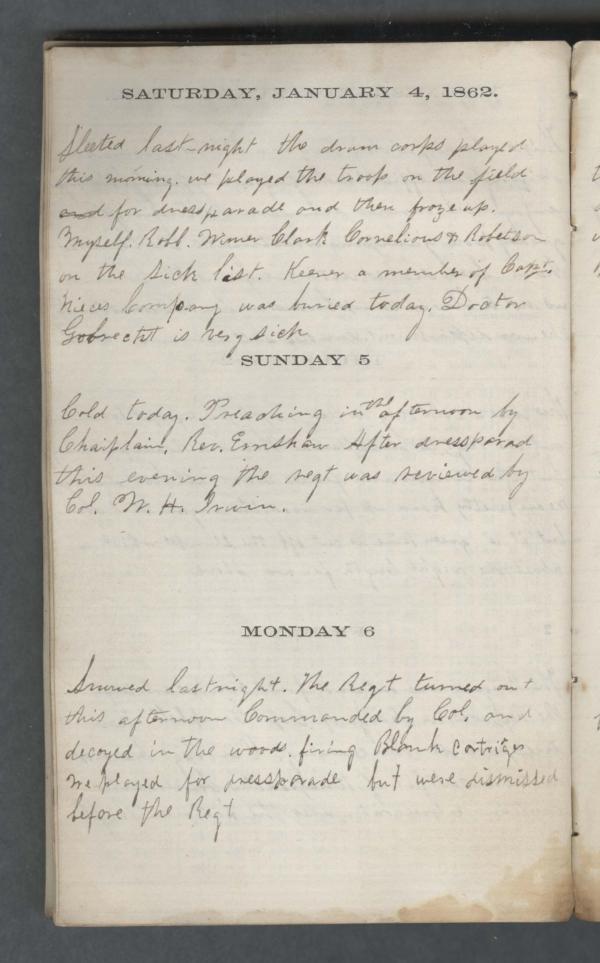 SATURDAY, JANUARY 4, 1862.
Sleeted last-night the drum corps played
this morning. we played the troop on the field
and for dressparade and then froze up.
Myself. Robb. Wimer Clark Cornelious & Robetson
on the Sick list. Keener a member of Capt.
Nieces Company was buried today. Doctor
Gobrecht is very sick
SUNDAY 5
Cold today. Preaching in the afternoon by
Chaiplain, Rev. Ernshaw After dressparad
this evening the regt was reviewed by
Col. W. H. Irwin.
MONDAY 6
Snowed lastnight. The Regt turned out
this afternoon Commanded by Col. and
decoyed in the woods. firing Blank Cartriges
We played for dressparade but were dismissed
before the Regt